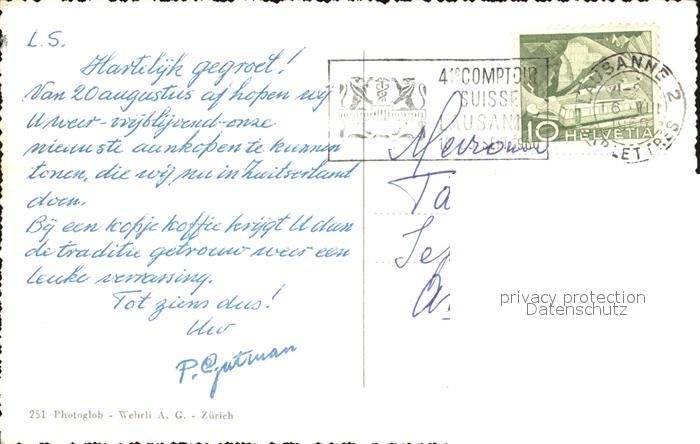 L.S.
Hartelijk gegroet!
Van 20 augustus af hopen wij
U weer-vrijblijvend-onze
nieuwste aankopen te kunnen
tonen, die wij nu in Zwitserland
doen.
Bij een kopje koffie krijgt U dan
de traditie getrouw weer een
leuke verrassing.
Tot ziens dus!
Uw
P. Gutman
251 Photoglob - Wehrli A. G. - Zürich
41e COMPTOIR
SUISSE
LAUSANNE
LAUSANNE 2
10 HELVETIA
Mevrouw
Ta
privacy protection
Datenschutz